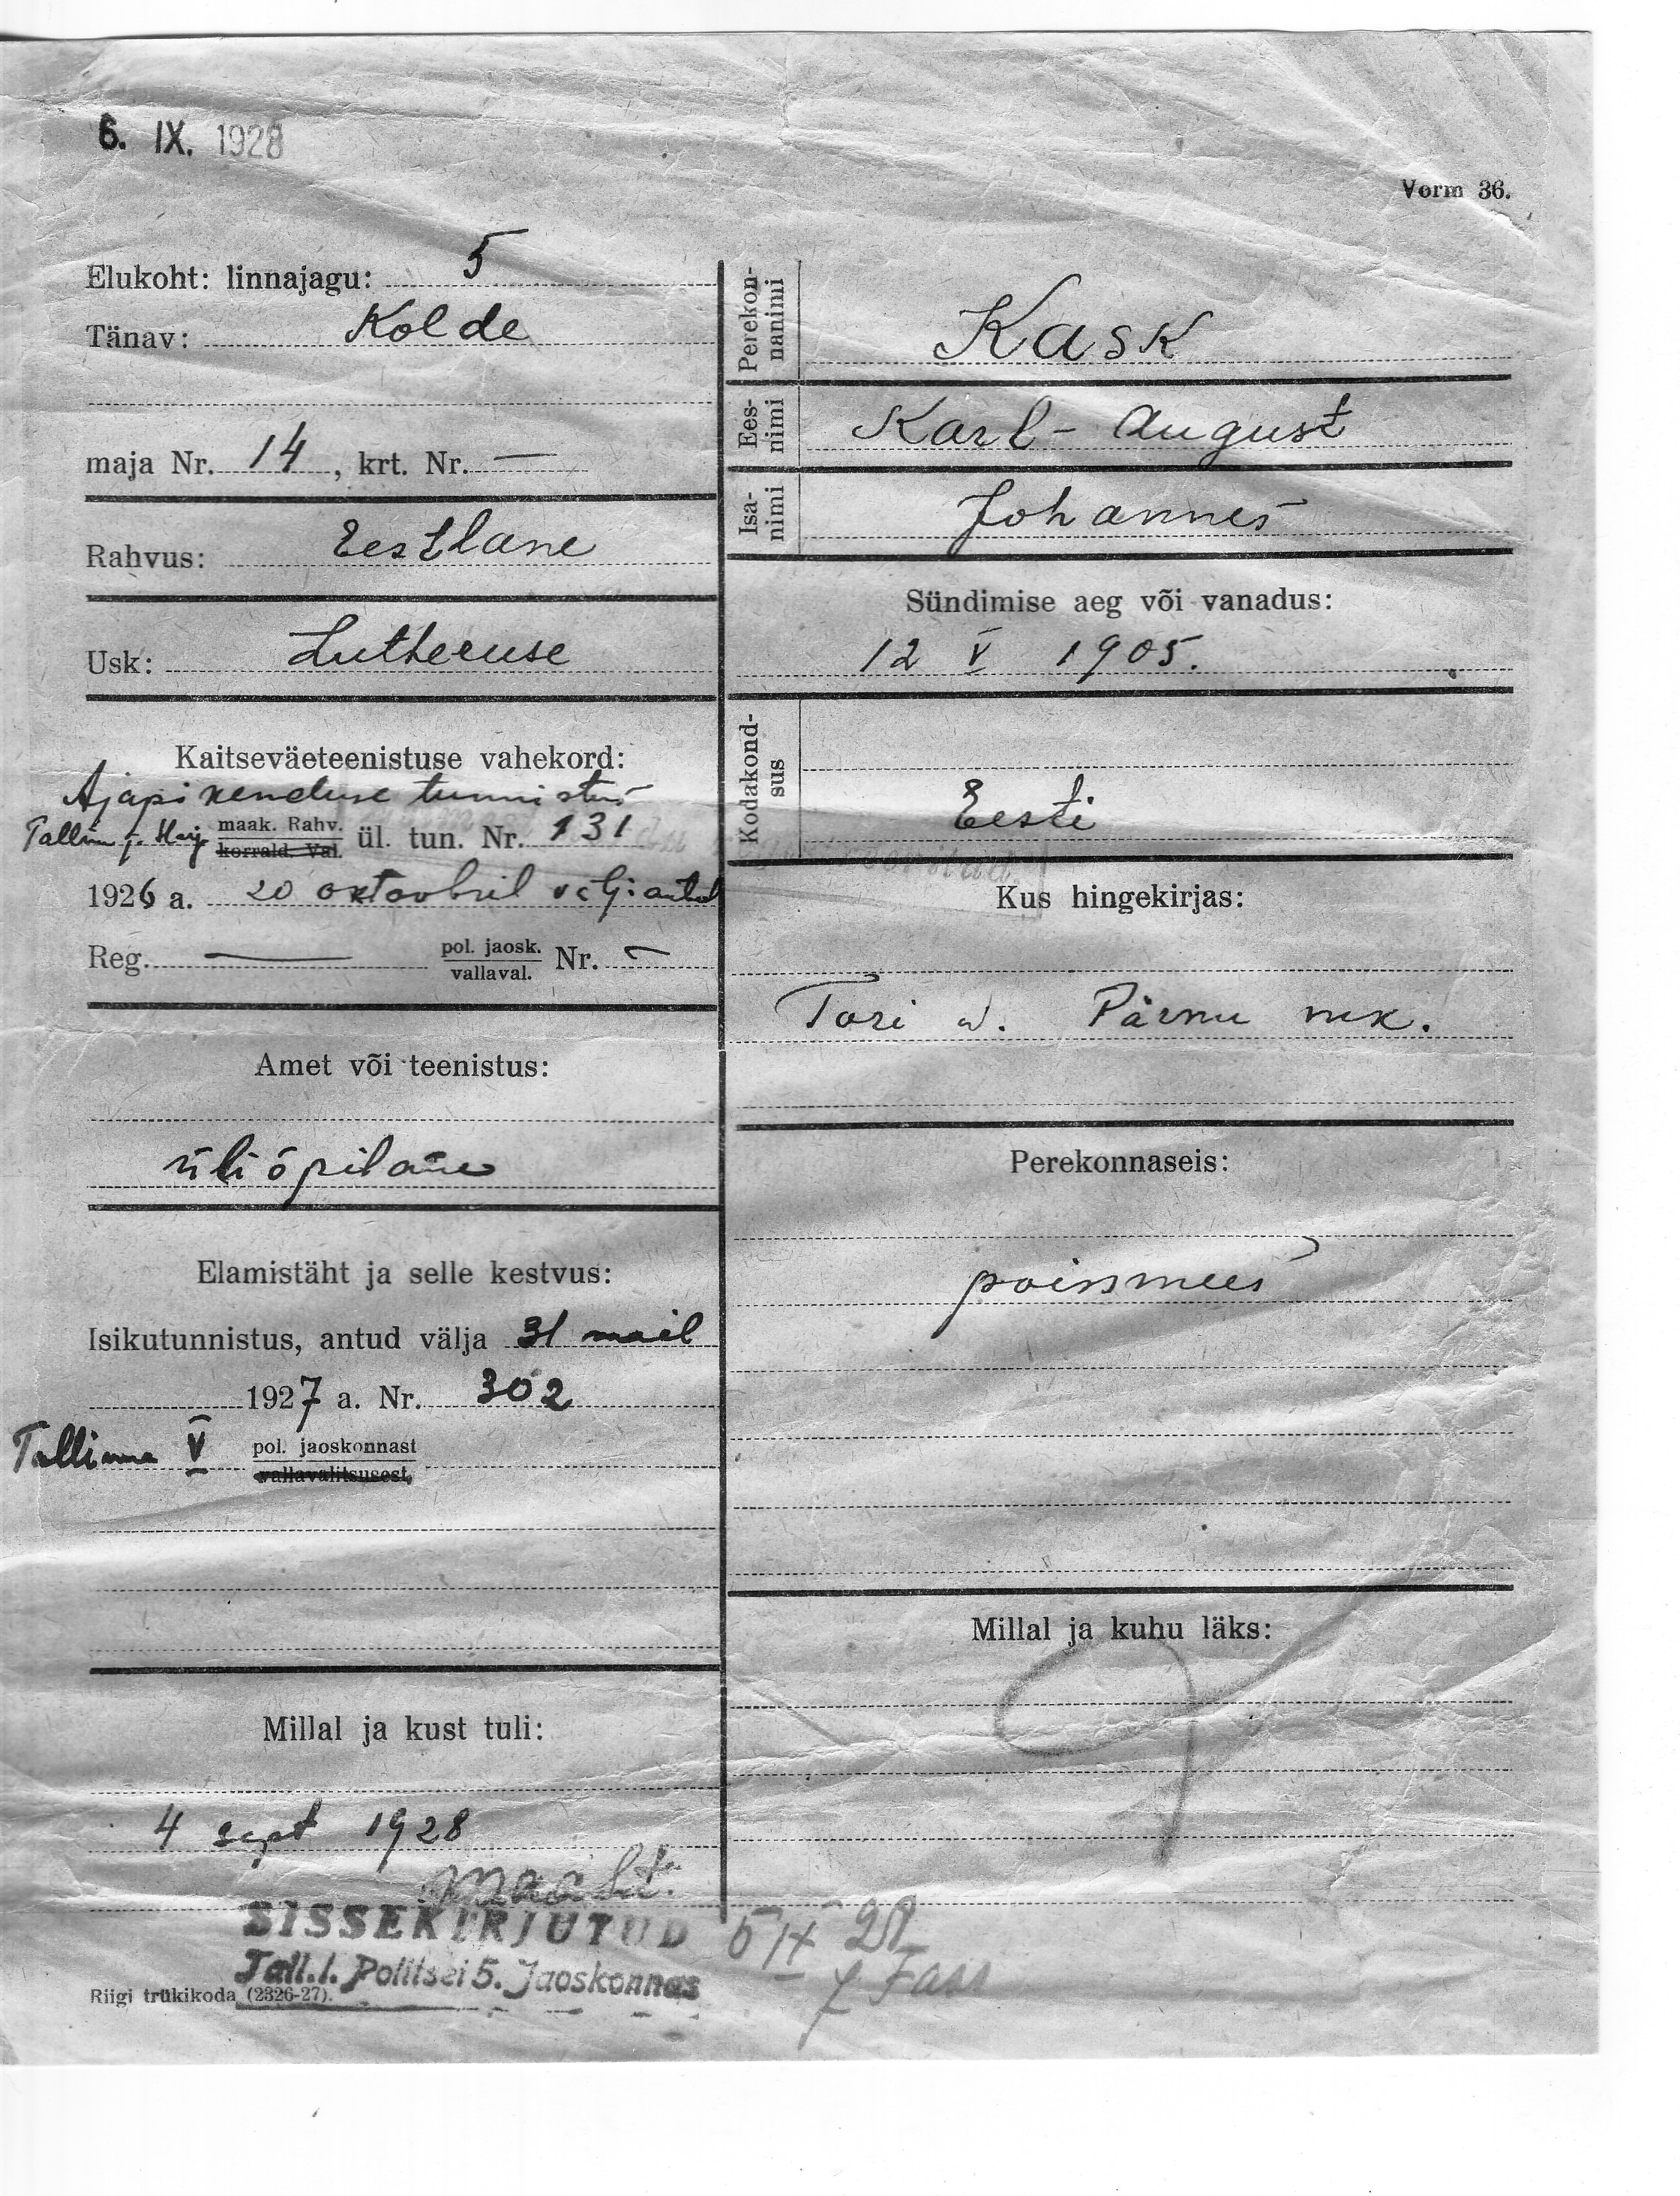 6. IX. 1928
Vorm 36.
Elukoht: linnajagu: 5
Tänav: Kolde
maja Nr. 14, krt. Nr. —
Rahvus: Eestlane
Usk: Lutheruse
Kaitseväeteenistuse vahekord:
Ajapikenduse tunnistus
Tallinn j. Harj maak. Rahv. korrald. Val. ül. tun. Nr. 131
1926 a. 20 oktoobril välj antud
Reg. — pol. jaosk. vallaval. Nr. —
Amet või teenistus:
üliõpilane
Elamistäht ja selle kestvus:
Isikutunnistus, antud välja 31 mail
1927 a. Nr. 302
Tallinna V pol. jaoskonnast
vallavalitsusest,
Millal ja kust tuli:
4 sept 1928
maalt.
SISSEKIRJUTUD
Tall.l. Politsei 5. Jaoskonnas
Riigi trükikoda (2326-27).
Perekonnanimi Kask
Eesnimi Karl-August
Isanimi Johannes
Sündimise aeg või vanadus:
12 V 1905.
Kodakondsus
Eesti
Kus hingekirjas:
Tori v. Pärnu mk.
Perekonnaseis:
poissmees
Millal ja kuhu läks:
5 IX 28